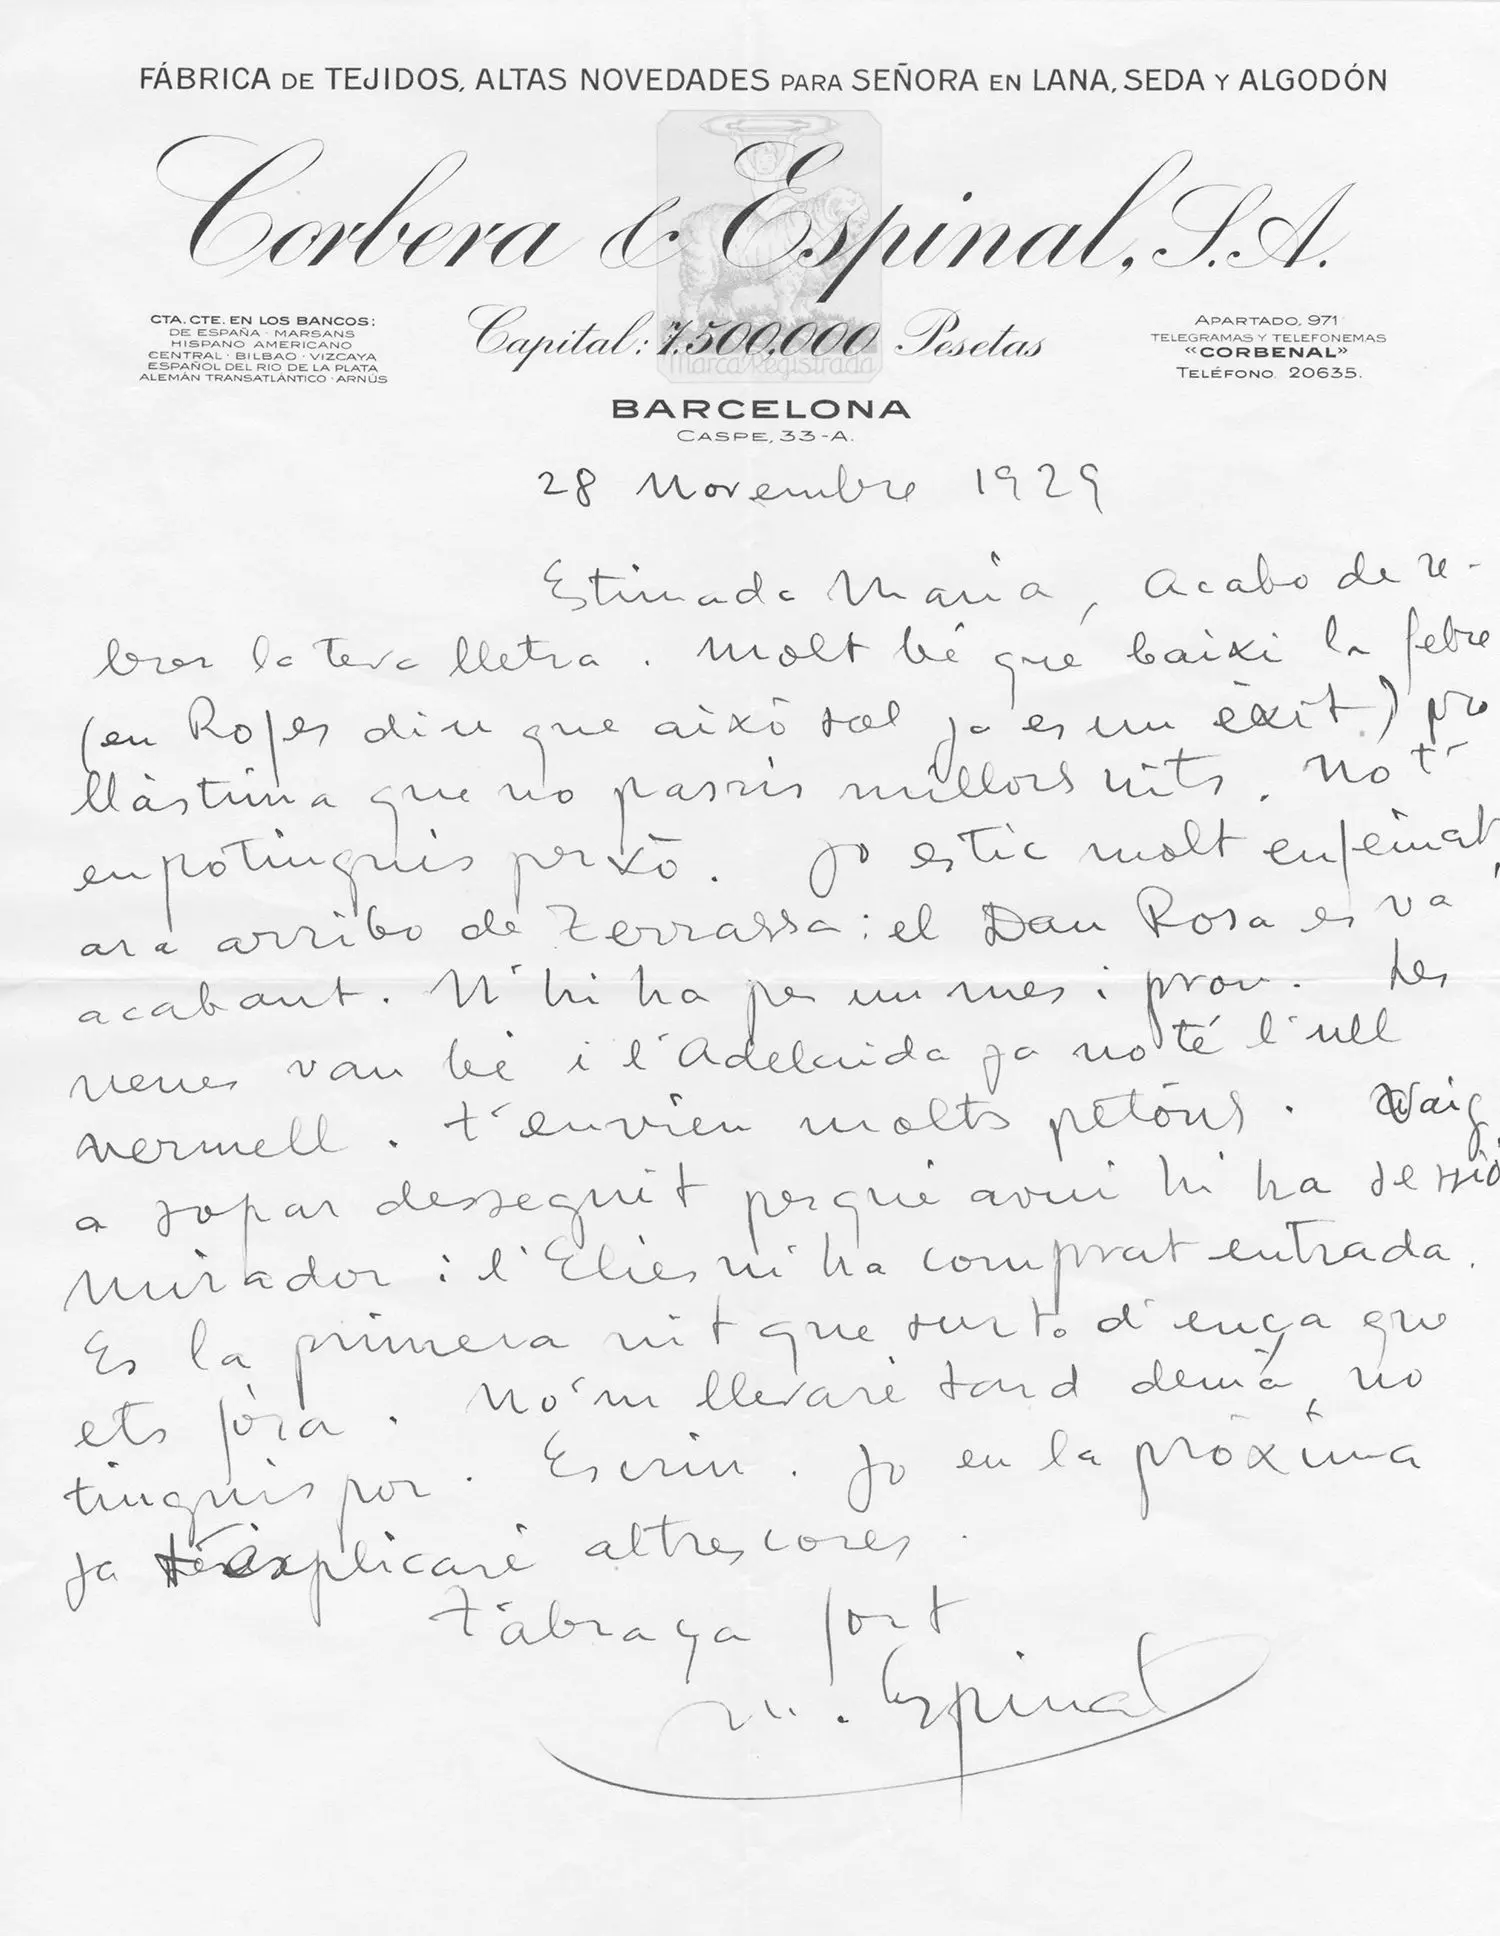 FÁBRICA DE TEJIDOS, ALTAS NOVEDADES PARA SEÑORA EN LANA, SEDA Y ALGODÓN
Corbera & Espinal, S.A.
CTA. CTE. EN LOS BANCOS:
DE ESPAÑA · MARSANS
HISPANO AMERICANO
CENTRAL · BILBAO · VIZCAYA
ESPAÑOL DEL RIO DE LA PLATA
ALEMÁN TRANSATLÁNTICO · ARNÚS
Capital: 7.500,000 Pesetas
Marca Registrada
APARTADO, 971
TELEGRAMAS Y TELEFONEMAS
«CORBENAL»
TELÉFONO. 20635.
BARCELONA
CASPE, 33-A.
28 Novembre 1929
Estimada Maria, Acabo de re-
brer la teva lletra. Molt bé que baixi la febre
(en Rofes diu que això sol ja es un èxit) pro
llàstima que no passis millors nits. No t'
enpotinguis perxò. Jo estic molt enfeinat,
ara arribo de Terrassa: el Dan Rosa es va
acabant. N'hi ha per un mes i prou. Les
nenes van bé i l'Adelaida ja no té l'ull
vermell. t'envien molts petóns. Vaig
a sopar desseguit perquè avui hi ha sessió
Mirador i l'Elies m'ha comprat entrada.
Es la primera nit que surto d'ença que
ets fòra. No'm llevaré tard demà, no
tinguis por. Escriu. Jo en la pròxima
ja t'explicaré altres coses.
T'abraça fort
M. Espinal